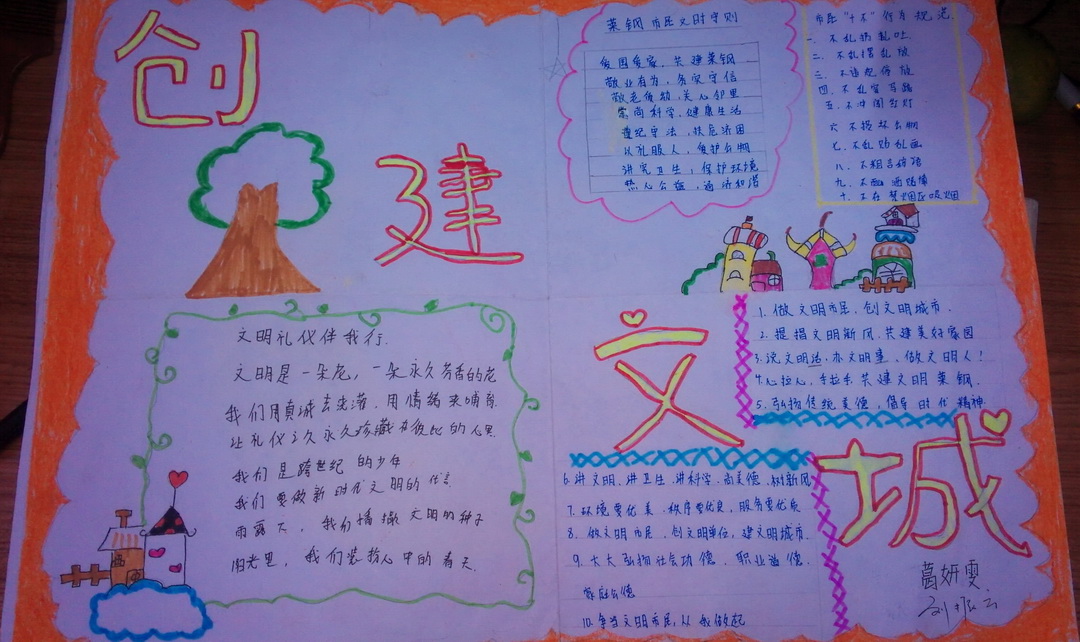 创
建
文明礼仪伴我行.
文明是一朵花,一朵永久芳香的花
我们用真诚去浇灌.用情绪来哺育
让礼仪之久永久珍藏在彼此的心里
我们是跨世纪的少年
我们要做新时代文明的
雨露下,我们播撒文明的种子
阳光里,我们装扮心中的春天.
莱钢市民文明守则
爱国爱家,共建莱钢
敬业有为,务实守信
敬老爱幼,关心邻里
崇尚科学,健康生活
遵纪守法,扶危济困
以礼服人,爱护公物
讲究卫生,保护环境
热心公益,
市民"十不"行为规范
一、不乱扔乱吐
二、不乱摆乱放
三、不违规停放
四、不乱
五、不冲闯红灯
六、不损坏公物
七、不乱贴乱画
八、不粗言
九、不
十、不在禁烟区吸烟
文
城
1.做文明市民.创文明城市.
2.提倡文明新风.共建美好家园
3.说文明话.办文明事、做文明人!
4.心拉心、手拉手共建文明莱钢.
5.弘扬传统美德,倡导时代精神.
6.讲文明.讲卫生.讲科学.尚美德.树新风
7.环境要优美.秩序要优良,服务要优质
8.做文明市民.创文明单位,建文明城市.
9.大大弘扬社会功德.职业道德.
家庭公德
10.争当文明市民,从我做起
葛妍雯